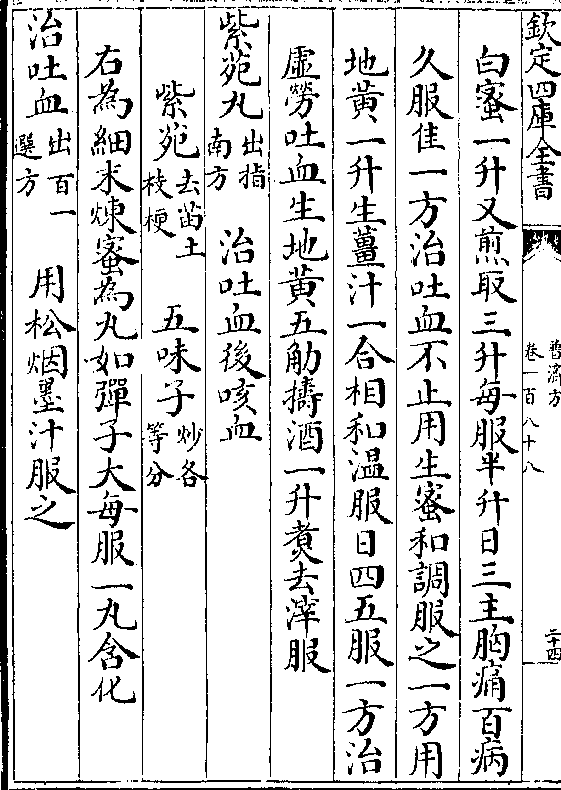 欽定四庫全書
普濟方
卷一百八十八
二十四
白蜜一升又煎取三升每服半升日三主胸痛百病
久服佳一方治吐血不止用生蜜和調服之一方用
地黄一升生薑汁一合相和温服日四五服一方治
虛勞吐血生地黄五觔擣酒一升煑去滓服
紫菀丸出指南方 治吐血後咳血
紫菀去苗土枝梗 五味子炒各等分
右為細末煉蜜為丸如彈子大每服一丸含化
治吐血出百一選方 用松烟墨汁服之